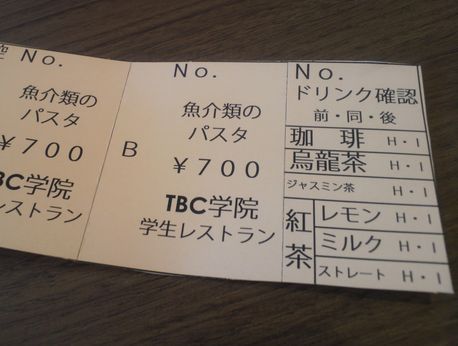 空 No.
魚介類の
パスタ
￥７００
TBC学院
レストラン
No.
魚介類の
パスタ
B
￥７００
TBC学院
学生レストラン
No.
ドリンク確認
前・同・後
珈 琲 H・I
烏龍茶 H・I
ジャスミン茶 H・I
紅茶
レモン H・I
ミルク H・I
ストレート H・I